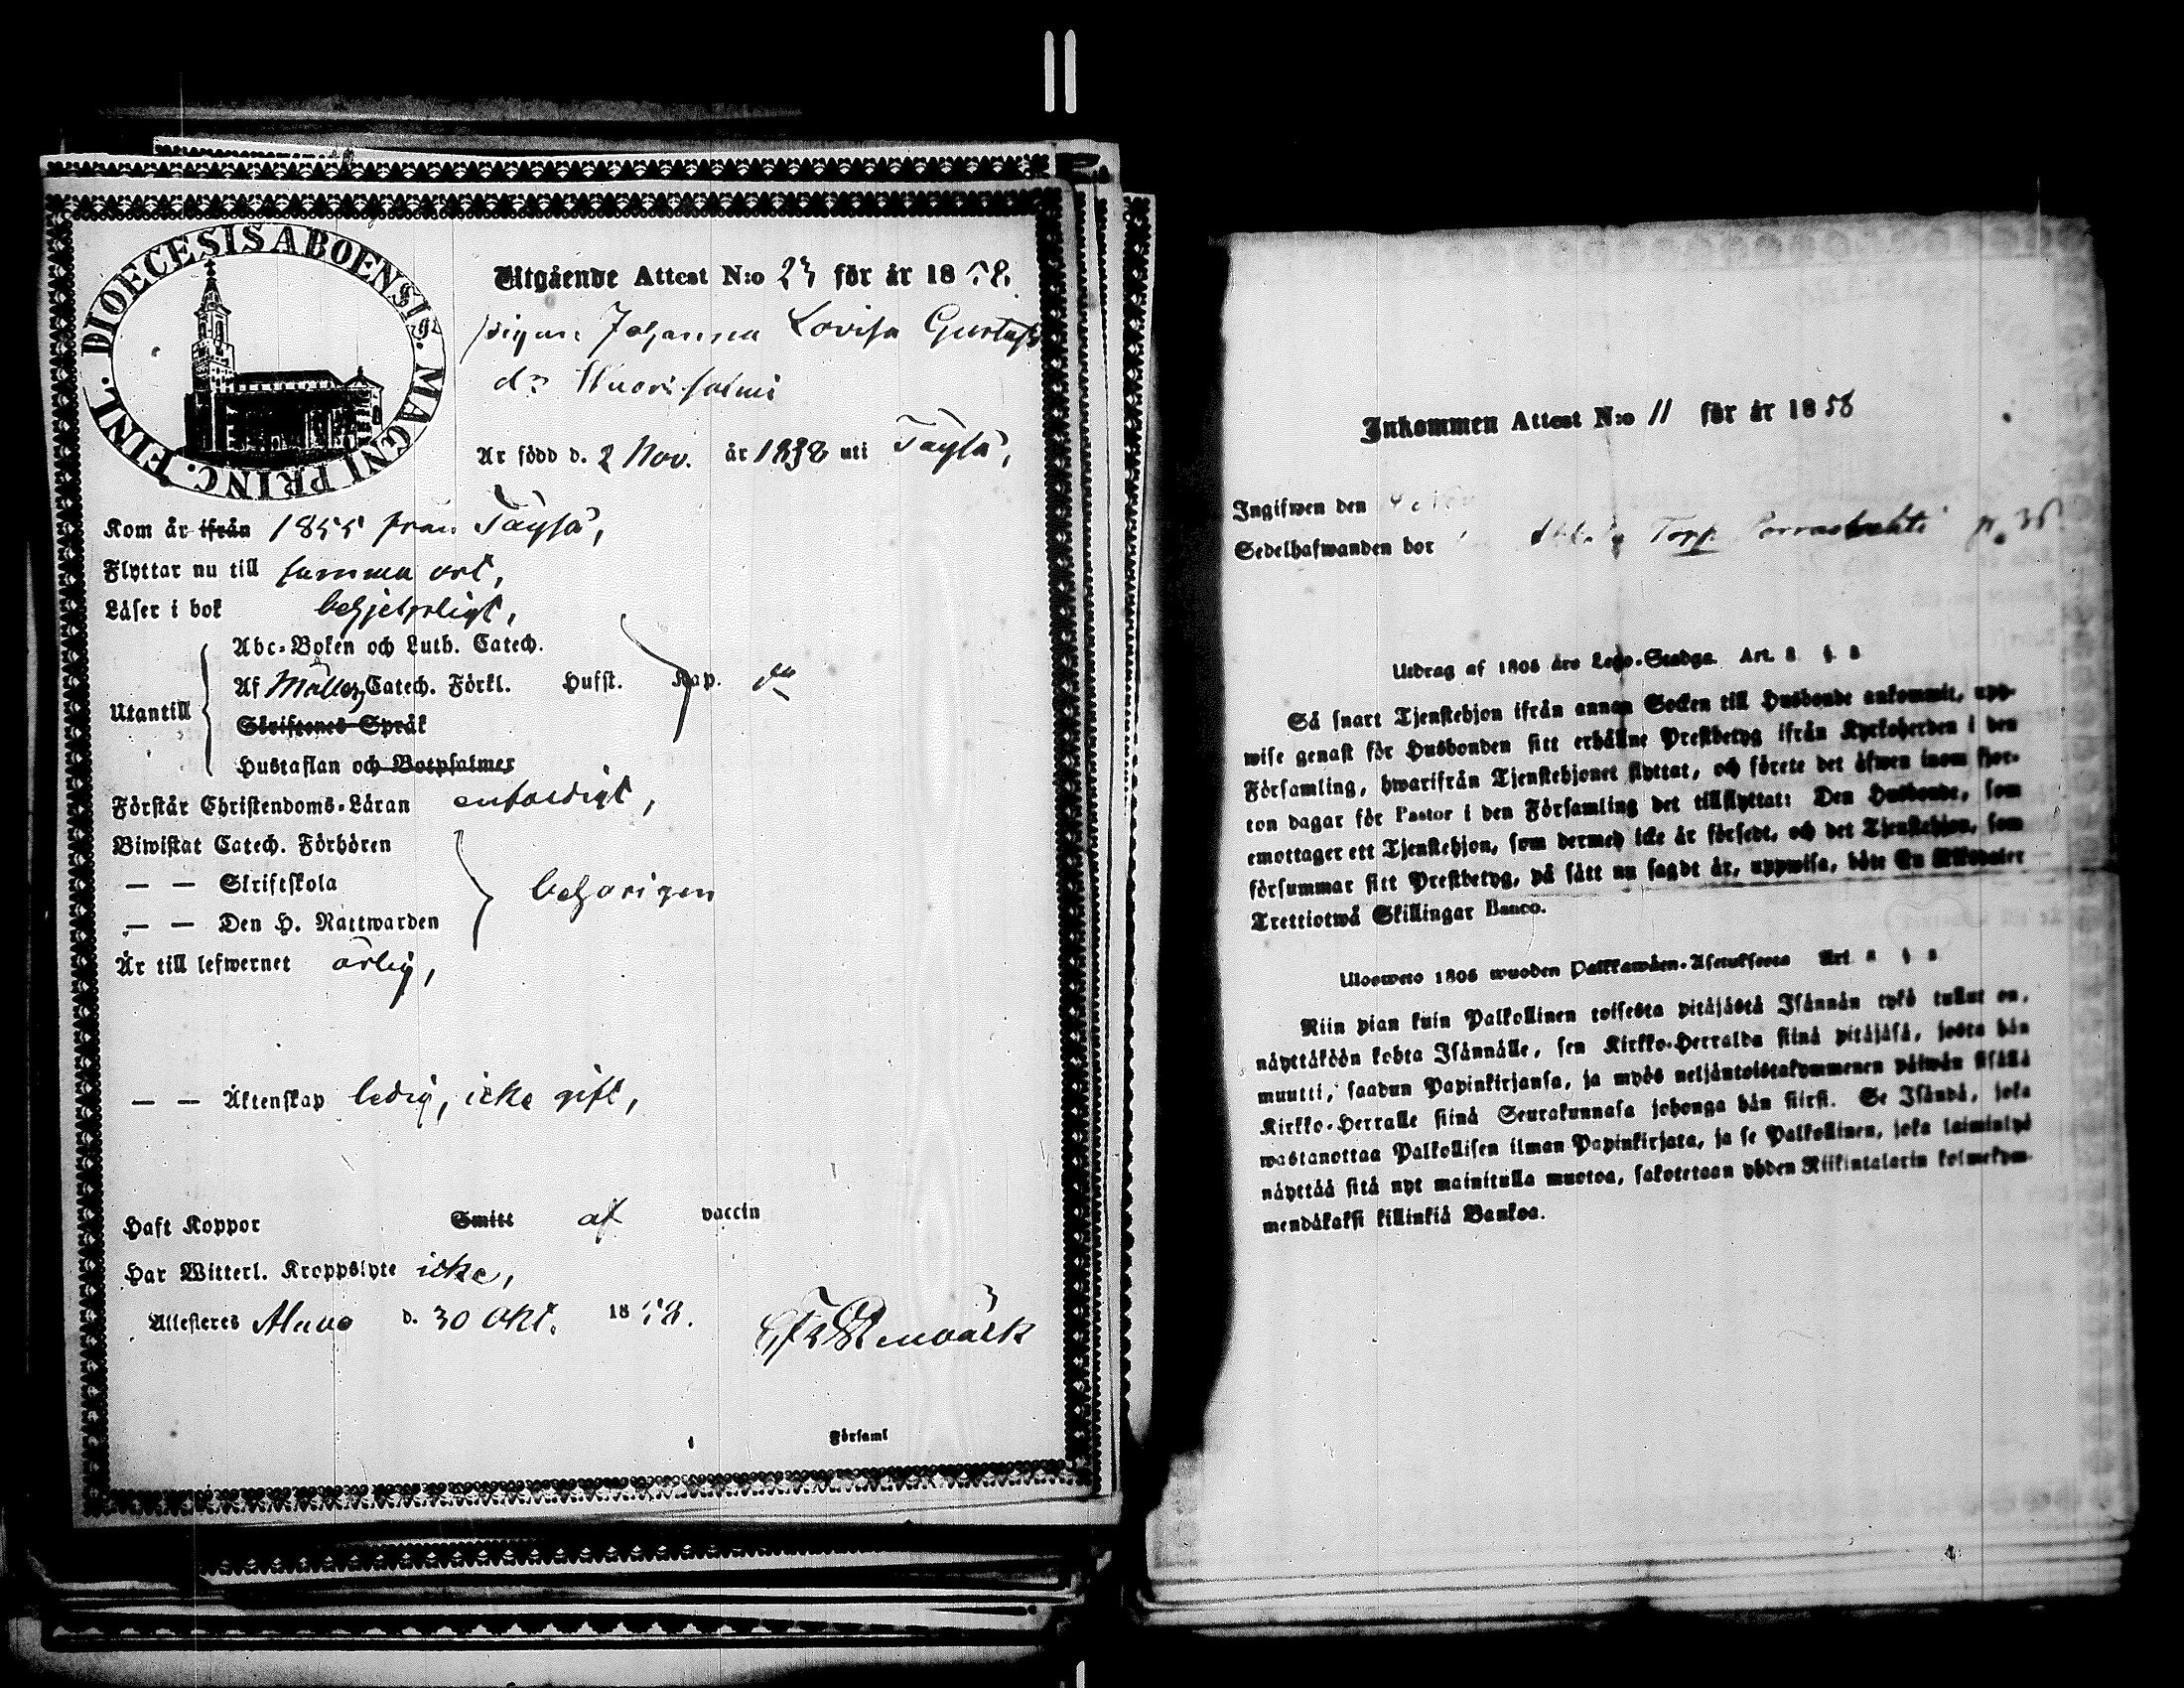 DIOECESIS ABOENSIS. MAGNI PRINC. FINL.
Utgående Attest N:o 23 för år 1858.
pigan Johanna Lovisa Gustafs
dr Wuorisalmi
Är född d. 2 Nov. år 1838 uti Töysä,
Kom år ifrån 1855 från Töysä,
Flyttar nu till samma ort,
Läser i bok behjelpligt,
Abc-Boken och Luth. Catech.
Af Möllers Catech. Förkl. Hufst. Kap.
Utantill
Skriftenes Språk
Hustaflan och Botpsalmer
Förstår Christendoms-Läran enfaldigt,
Biwistat Catech. Förhören
— — Skriftskola behörigen
— — Den H. Nattwarden
Är till lefwernet ärlig,
— — Äktenskap ledig, icke gift,
Haft Koppor Smitt af vaccin
Har Witterl. Kroppslyte icke,
Attesteres Alavo d. 30 Okt. 1858.
Församl
Inkommen Attest N:o 11 för år 1858
Ingifwen den 4
Sedelhafwanden bor Torp p. 36
Utdrag af 1805 års Lego-Stadga. Art. 8 § 8
Så snart Tjenstehjon ifrån annan Socken till Husbonde ankommit, upp-
wise genast för Husbonden sitt erhållne Prestbetyg ifrån Kyrkoherden i den
Församling, hwarifrån Tjenstehjonet flyttat, och förete det äfwen inom fjor-
ton dagar för Pastor i den Församling det tillflyttat: Den Husbonde, som
emottager ett Tjenstehjon, som dermed icke är försedt, och det Tjenstehjon, som
försummar sitt Prestbetyg, på sätt nu sagdt är, uppwisa, böte En Riksdaler
Trettiotwå Skillingar Banco.
Ulosweto 1805 wuoden Palkkawäen-Asetuksesta Art 8 § 8
Niin pian kuin Palkollinen toisesta pitäjästä Isännän tykö tullut on,
näyttäköön kohta Isännälle, sen Kirkko-Herralda siinä pitäjäsä, josta hän
muutti, saadun Papinkirjansa, ja myös neljäntoistakymmenen päiwän sisällä
Kirkko-Herralle siinä Seurakunnasa johonga hän siirsi. Se Isändä, joka
wastanottaa Palkollisen ilman Papinkirjata, ja se Palkollinen, joka laiminlyö
näyttää sitä nyt mainitulla muotoa, sakotetaan yhden Riikintalarin kolmekym-
mendäkaksi killinkiä Bankoa.